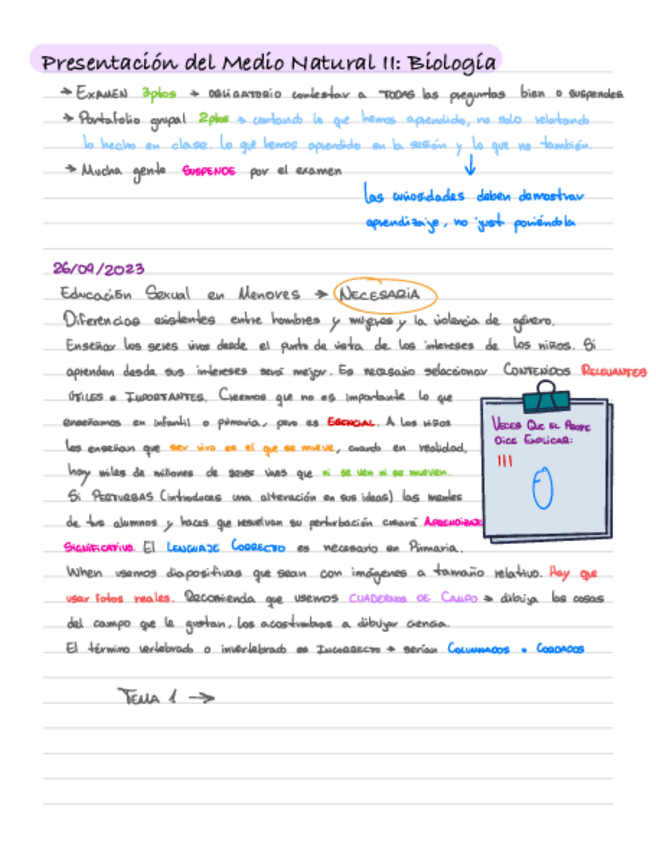 Presentación del Medio Natural II: Biología
→ EXAMEN 3ptos → OBLIGATORIO contestar a TODAS las preguntas bien o suspendes
→ Portafolio grupal 2ptos → contando lo que hemos aprendido, no solo relatando
lo hecho en clase. Lo que hemos aprendido en la sesión y lo que no también.
→ Mucha gente SUSPENDE por el examen
↓
Las curiosidades deben demostrar
aprendizaje, no just poniéndola
26/09/2023
Educación Sexual en Menores → NECESARIA
Diferencias existentes entre hombres y mujeres y la violencia de género.
Enseñar los seres vivos desde el punto de vista de los intereses de los niños. Si
aprenden desde sus intereses será mejor. Es necesario seleccionar CONTENIDOS RELEVANTES
ÚTILES e IMPORTANTES. Creemos que no es importante lo que
enseñamos en infantil o primaria, pero es ESENCIAL. A los niños
les enseñan que ser vivo es el que se mueve, cuando en realidad,
hay miles de millones de seres vivos que ni se ven ni se mueven.
Si PERTURBAS (introduces una alteración en sus ideas) las mentes
de tus alumnos y haces que resuelvan su perturbación creará APRENDIZAJE
SIGNIFICATIVO. El LENGUAJE CORRECTO es necesario en Primaria.
When usemos diapositivas que sean con imágenes a tamaño relativo. Hay que
usar fotos reales. Recomienda que usemos CUADERNOS DE CAMPO → dibuja las cosas
del campo que le gustan, los acostumbras a dibujar ciencia.
El término vertebrado o invertebrado es INCORRECTO → serían COLUMNADOS o CORDADOS
VECES QUE EL
DICE EXPLICAR:
III
0
TEMA 1 →